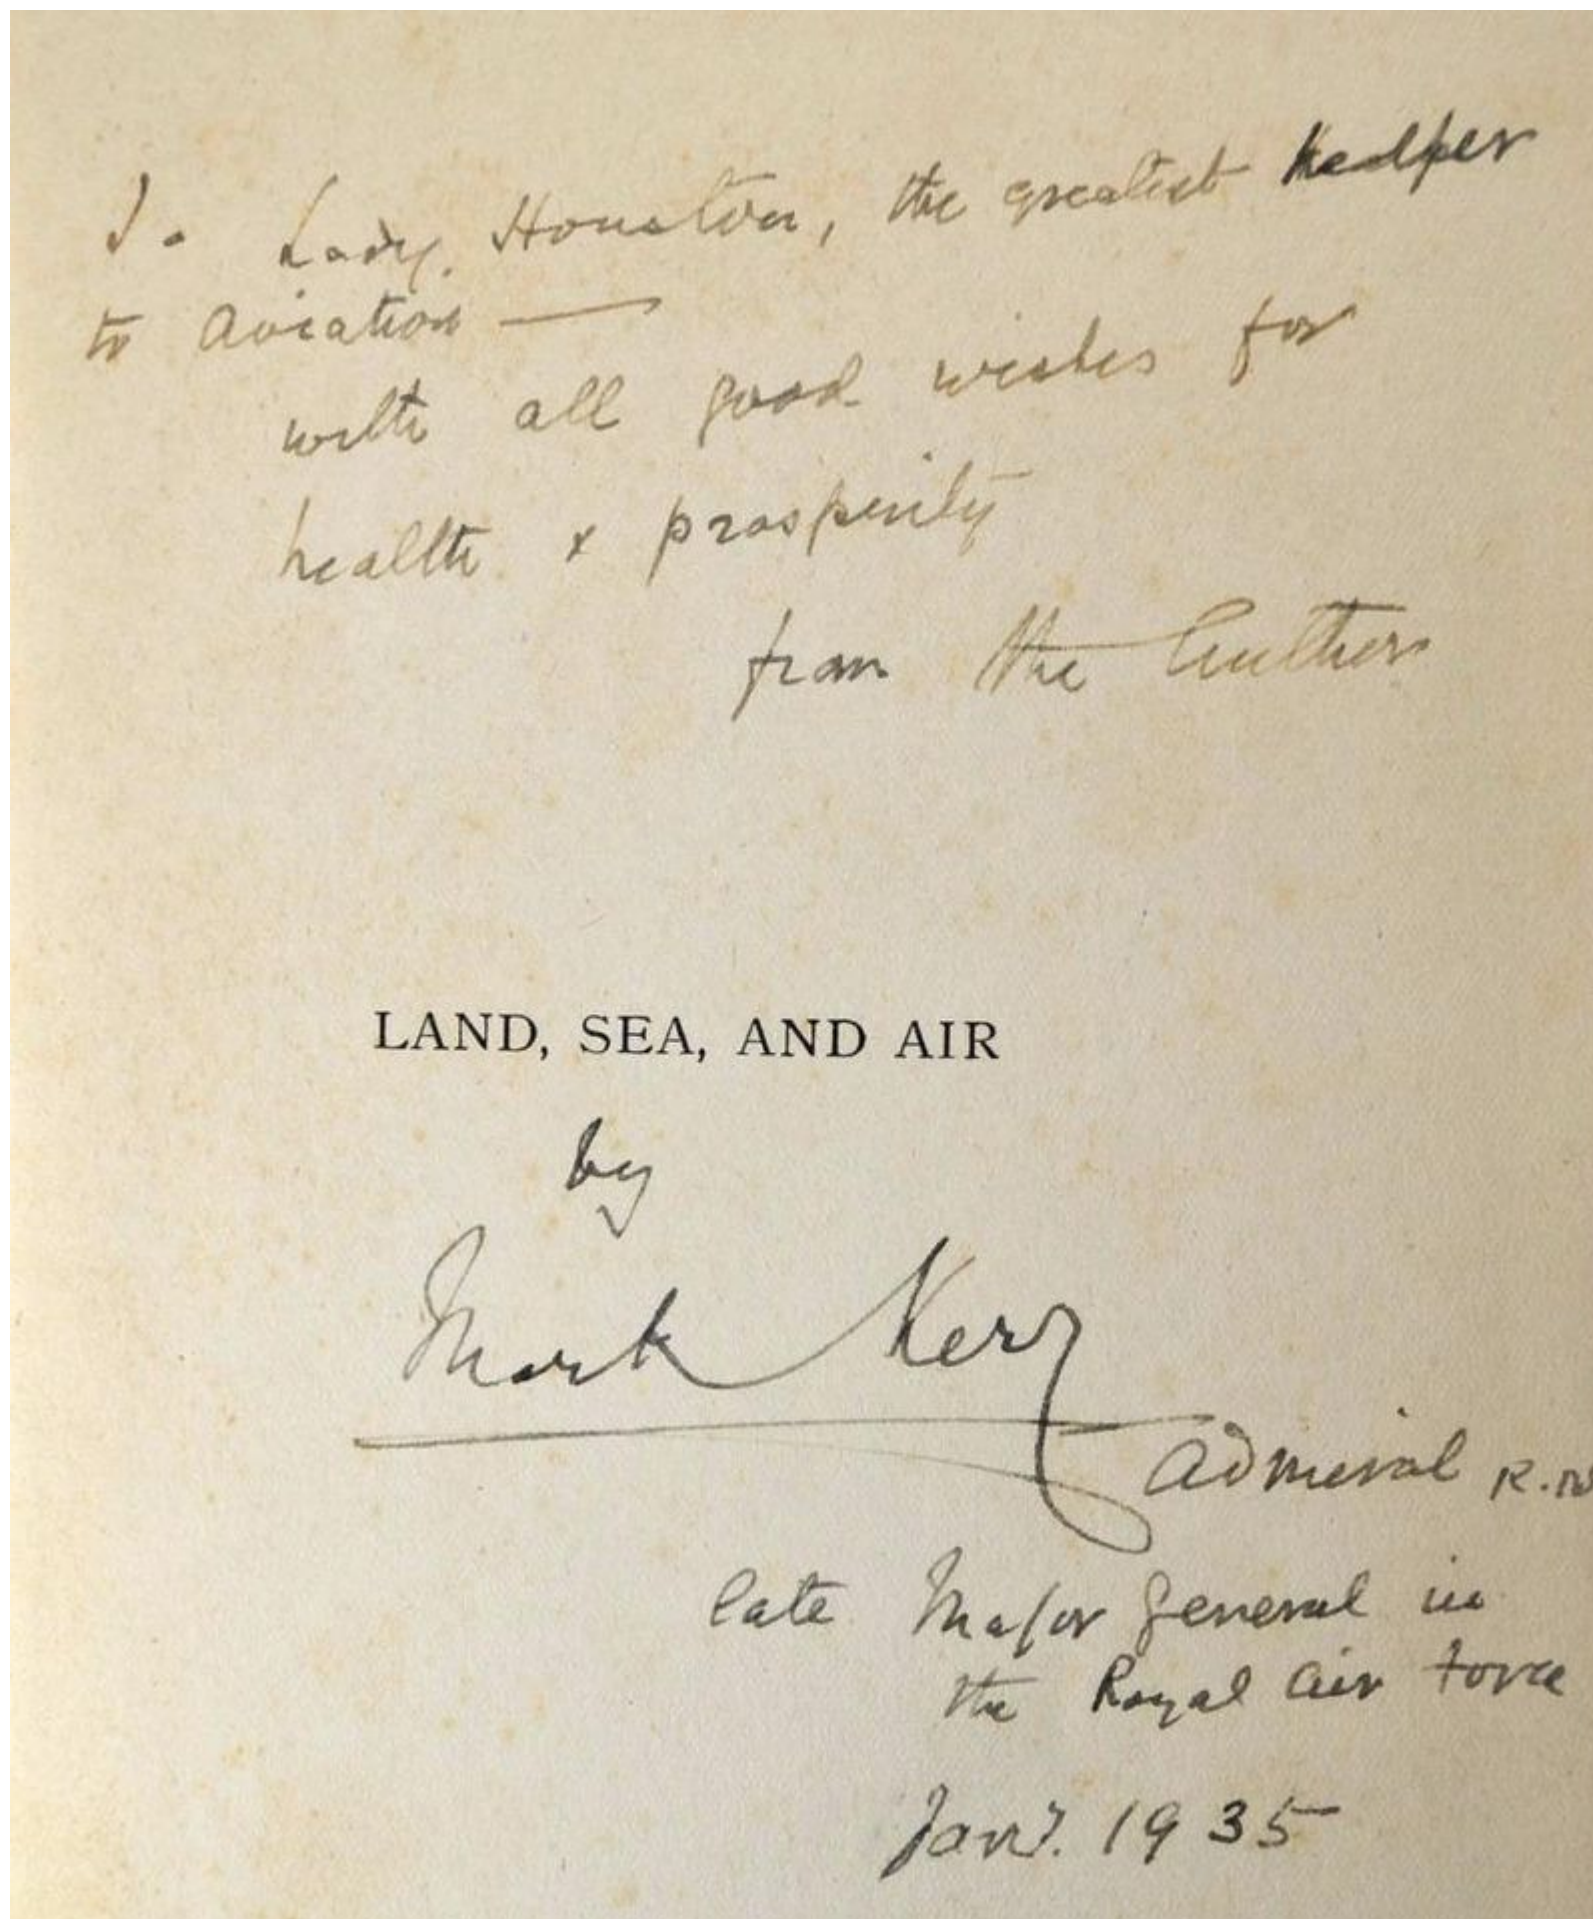 To Lady Houston, the greatest helper
to aviation —
with all good wishes for
health & prosperity
from the Author
LAND, SEA, AND AIR
by
Mark Kerr
Admiral R.N
late Major General in
the Royal Air Force
Jany. 1935